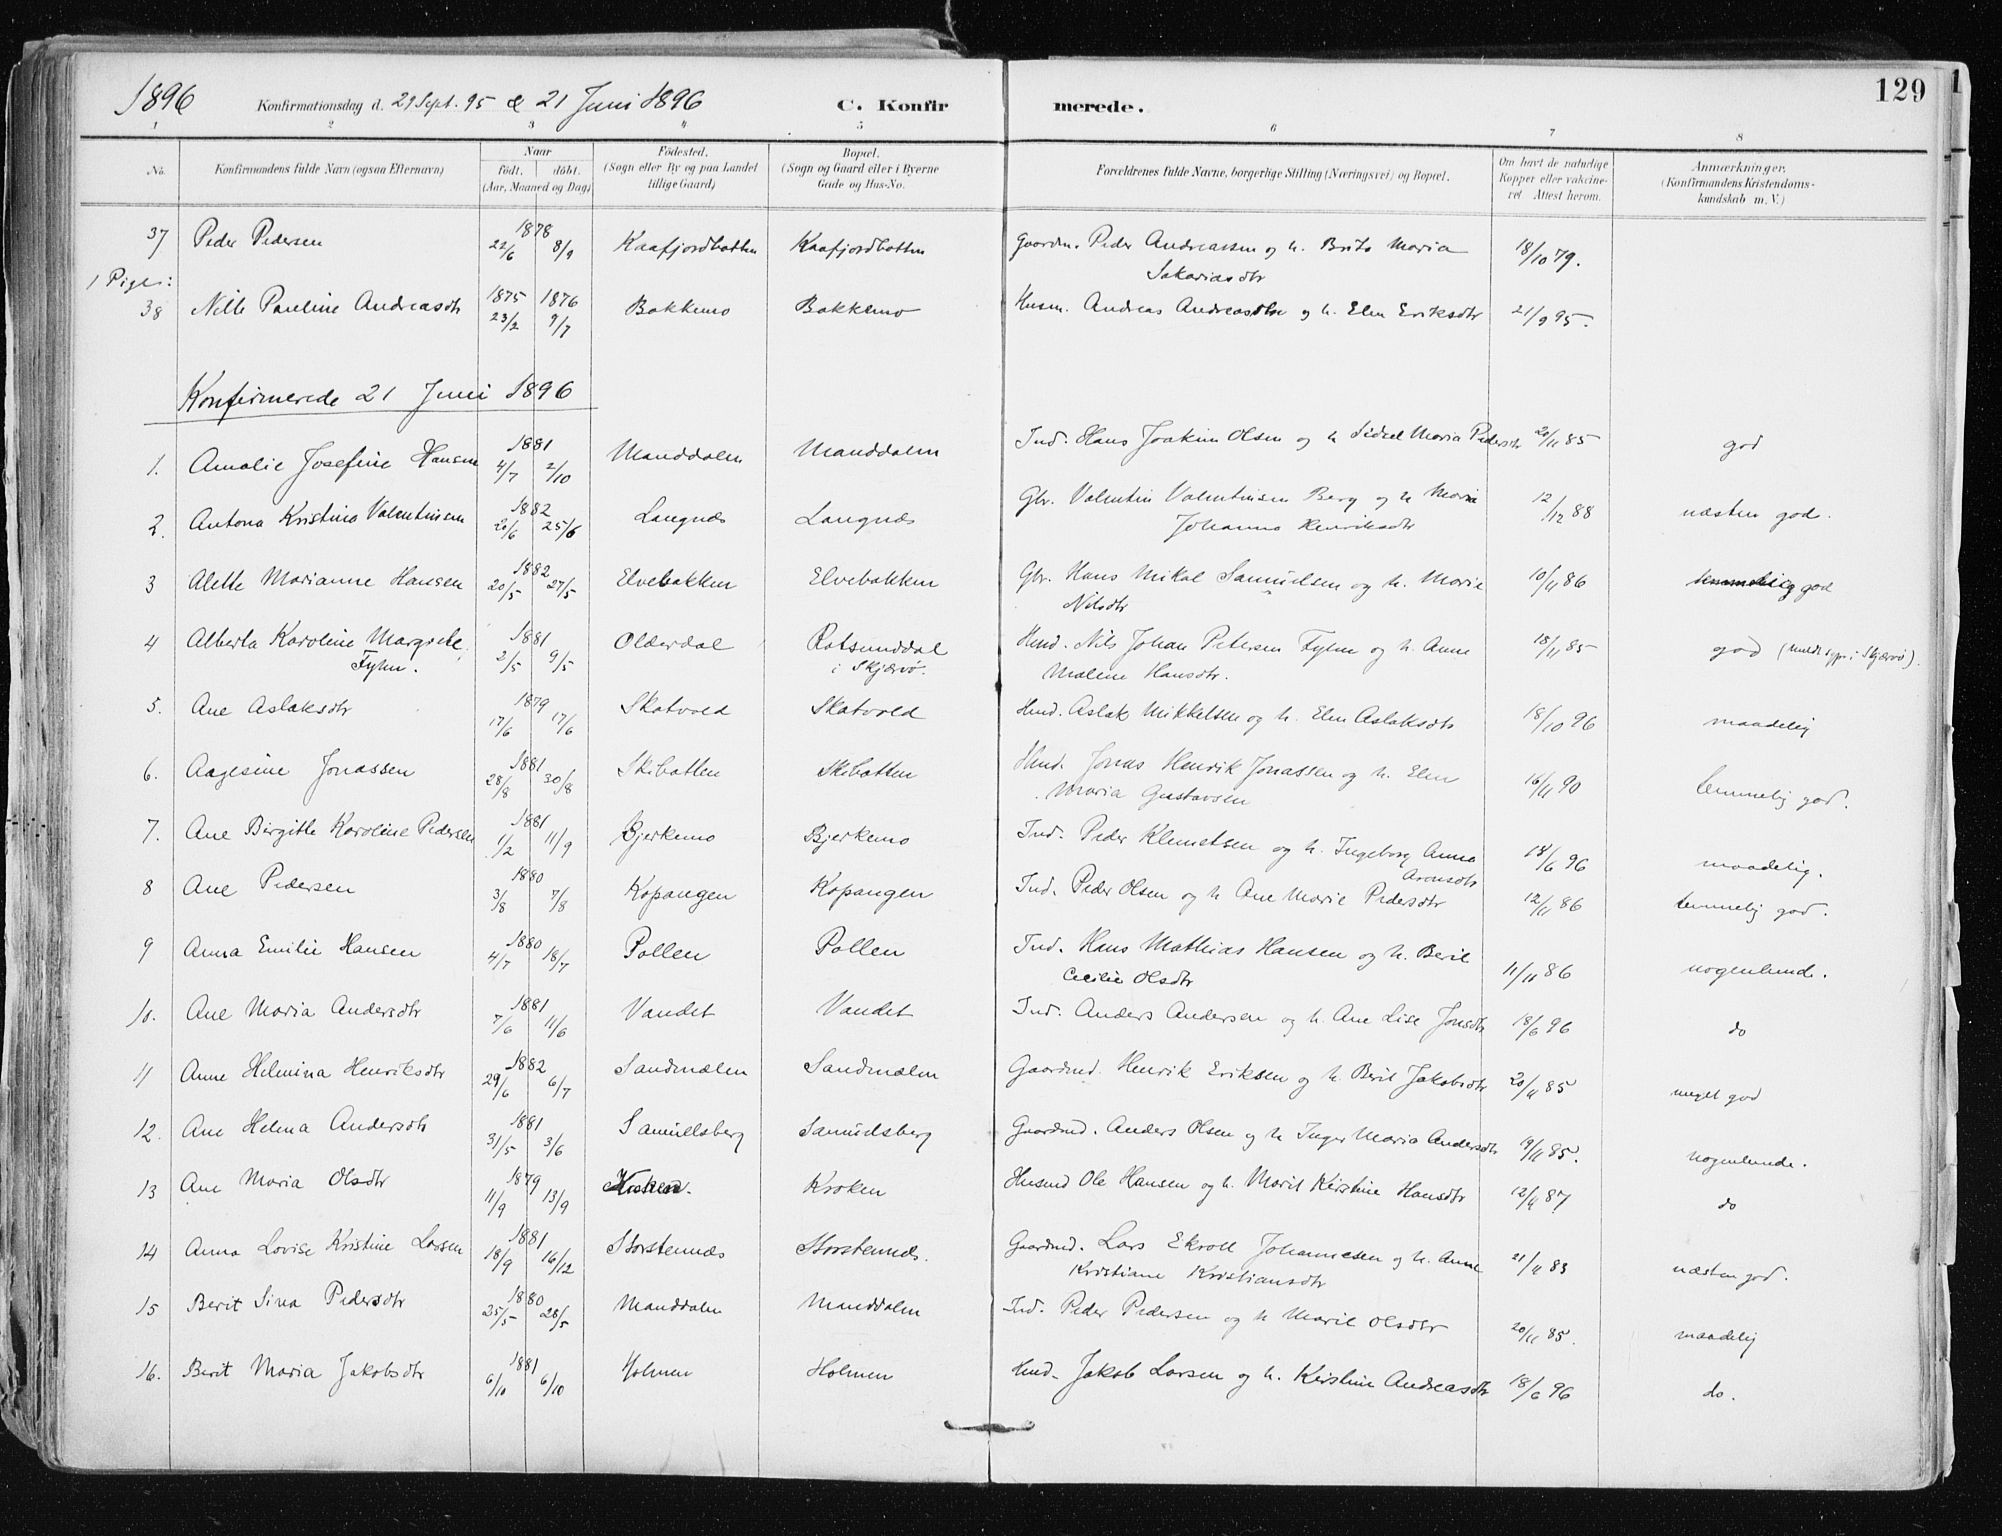 129
1896 Konfirmationsdag d. 29 Sept. 95 & 21 Juni 1896 C. Konfirmerede.
1 2 3 4 5 6 7 8
No. Konfirmandens fulde Navn (ogsaa Efternavn) Naar født. døbt. (Aar, Maaned og Dag) Fødested. (Sogn eller By og paa Landet tillige Gaard) Bopæl. (Sogn og Gaard eller i Byerne Gade og Hus-No. Forældrenes fulde Navne, borgerlige Stilling (Næringsvei) og Bopæl. Om havt de naturlige Kopper eller vakcineret. Attest herom. Anmærkninger. (Konfirmandens Kristendomskundskab m. V.)
37 Peder Pedersen 1878 22/6 8/9 Kaafjordbotten Kaafjordbotten Gaardm. Peder Andreassen og h. Brita Maria Sakariasdtr 18/10 79.
1 Pige:
38 Nille Pauline Andreasdtr 1875 23/2 1876 9/7 Bakkemo Bakkemo Husm. Andreas Andreas og h. Elen Eriksdtr 21/9 95.
Konfirmerede 21 Juni 1896
1. Amalie Josefine Hansen 1881 4/7 2/10 Manddalen Manddalen Ind. Hans Joakim Olsen og h. Sidsel Maria Pedersdtr 20/11 85 god
2. Antona Kristina Valentinsen 1882 20/6 25/6 Langnæs Langnæs Gbr. Valentin Valentinsen Berg og h. Maria Johanna Henriksdtr 12/12 88 næsten god.
3 Alette Marianne Hansen 1882 20/5 27/5 Elvebakken Elvebakken Gbr. Hans Mikal Samuelsen og h. Marie Nilsdtr 10/11 86 temmelig god
4 Alberta Karoline Margrete Fyhn. 1881 2/5 9/5 Olderdal Rotsunddal i Skjærvø. Husmd. Nils Johan Petersen Fyhn og h. Anne Malene Hansdtr. 18/11 85 god (meldt i Skjærvø).
5. Ane Aslaksdtr 1879 17/6 17/6 Skatvold Skatvold Husmd. Aslak Mikkelsen og h. Elen Aslaksdtr 18/10 96 maadelig
6. Aagesine Jonassen 1881 28/8 30/8 Skibotten Skibotten Husmd. Jonas Henrik Jonassen og h. Elen Maria Gustavsen 16/11 90 temmelig god.
7. Ane Birgitte Karoline Pedersen 1881 1/2 11/9 Bjerkemo Bjerkemo Ind. Peder Klemetsen og h. Ingeborg Anna Aronsdtr 18/6 96 maadelig.
8 Ane Pedersen 1880 3/8 7/8 Kopangen Kopangen Ind. Peder Olsen og h. Ane Marie Pedersdtr 12/11 86 temmelig god.
9 Anna Emilie Hansen 1880 4/7 18/7 Pollen Pollen Ind. Hans Mathias Hansen og h. Berit Cecilie Olsdtr 11/11 86 nogenlunde.
10. Ane Maria Andersdtr 1881 7/6 11/6 Vandet Vandet Ind. Anders Andersen og h. Ane Lise Jonsdtr 18/6 96 do
11 Anne Helmina Henriksdtr 1882 29/6 6/7 Sandmælen Sandmælen Gaardmd. Henrik Eriksen og h. Berit Jakobsdtr 20/11 85 meget god
12. Ane Helena Andersdtr 1881 31/5 3/6 Samuelsberg Samuelsberg Gaardmd. Anders Olsen og h. Inger Maria Andersdtr 19/11 85. nogenlunde.
13 Ane Maria Olsdtr 1879 11/9 13/9 Kroken. Kroken Husmd Ole Hansen og h. Marit Kirstine Hansdtr 12/11 87 do
14 Anna Lovise Kristine Larsen 1881 18/9 16/12 Storstennæs Storstennæs. Gaardmd. Lars Ekroll Johannesen og h. Anne Kristiane Kristiansdtr 21/11 83 næsten god.
15 Berit Sina Pedersdtr 1880 25/5 28/5 Manddalen Manddalen Ind. Peder Pedersen og h Marit Olsdtr 20/11 85. maadelig
16. Berit Maria Jakobsdtr 1881 6/10 6/10 Holmen Holmen Husmd. Jakob Larsen og h. Kirstine Andreasdtr 18/6 96 do.